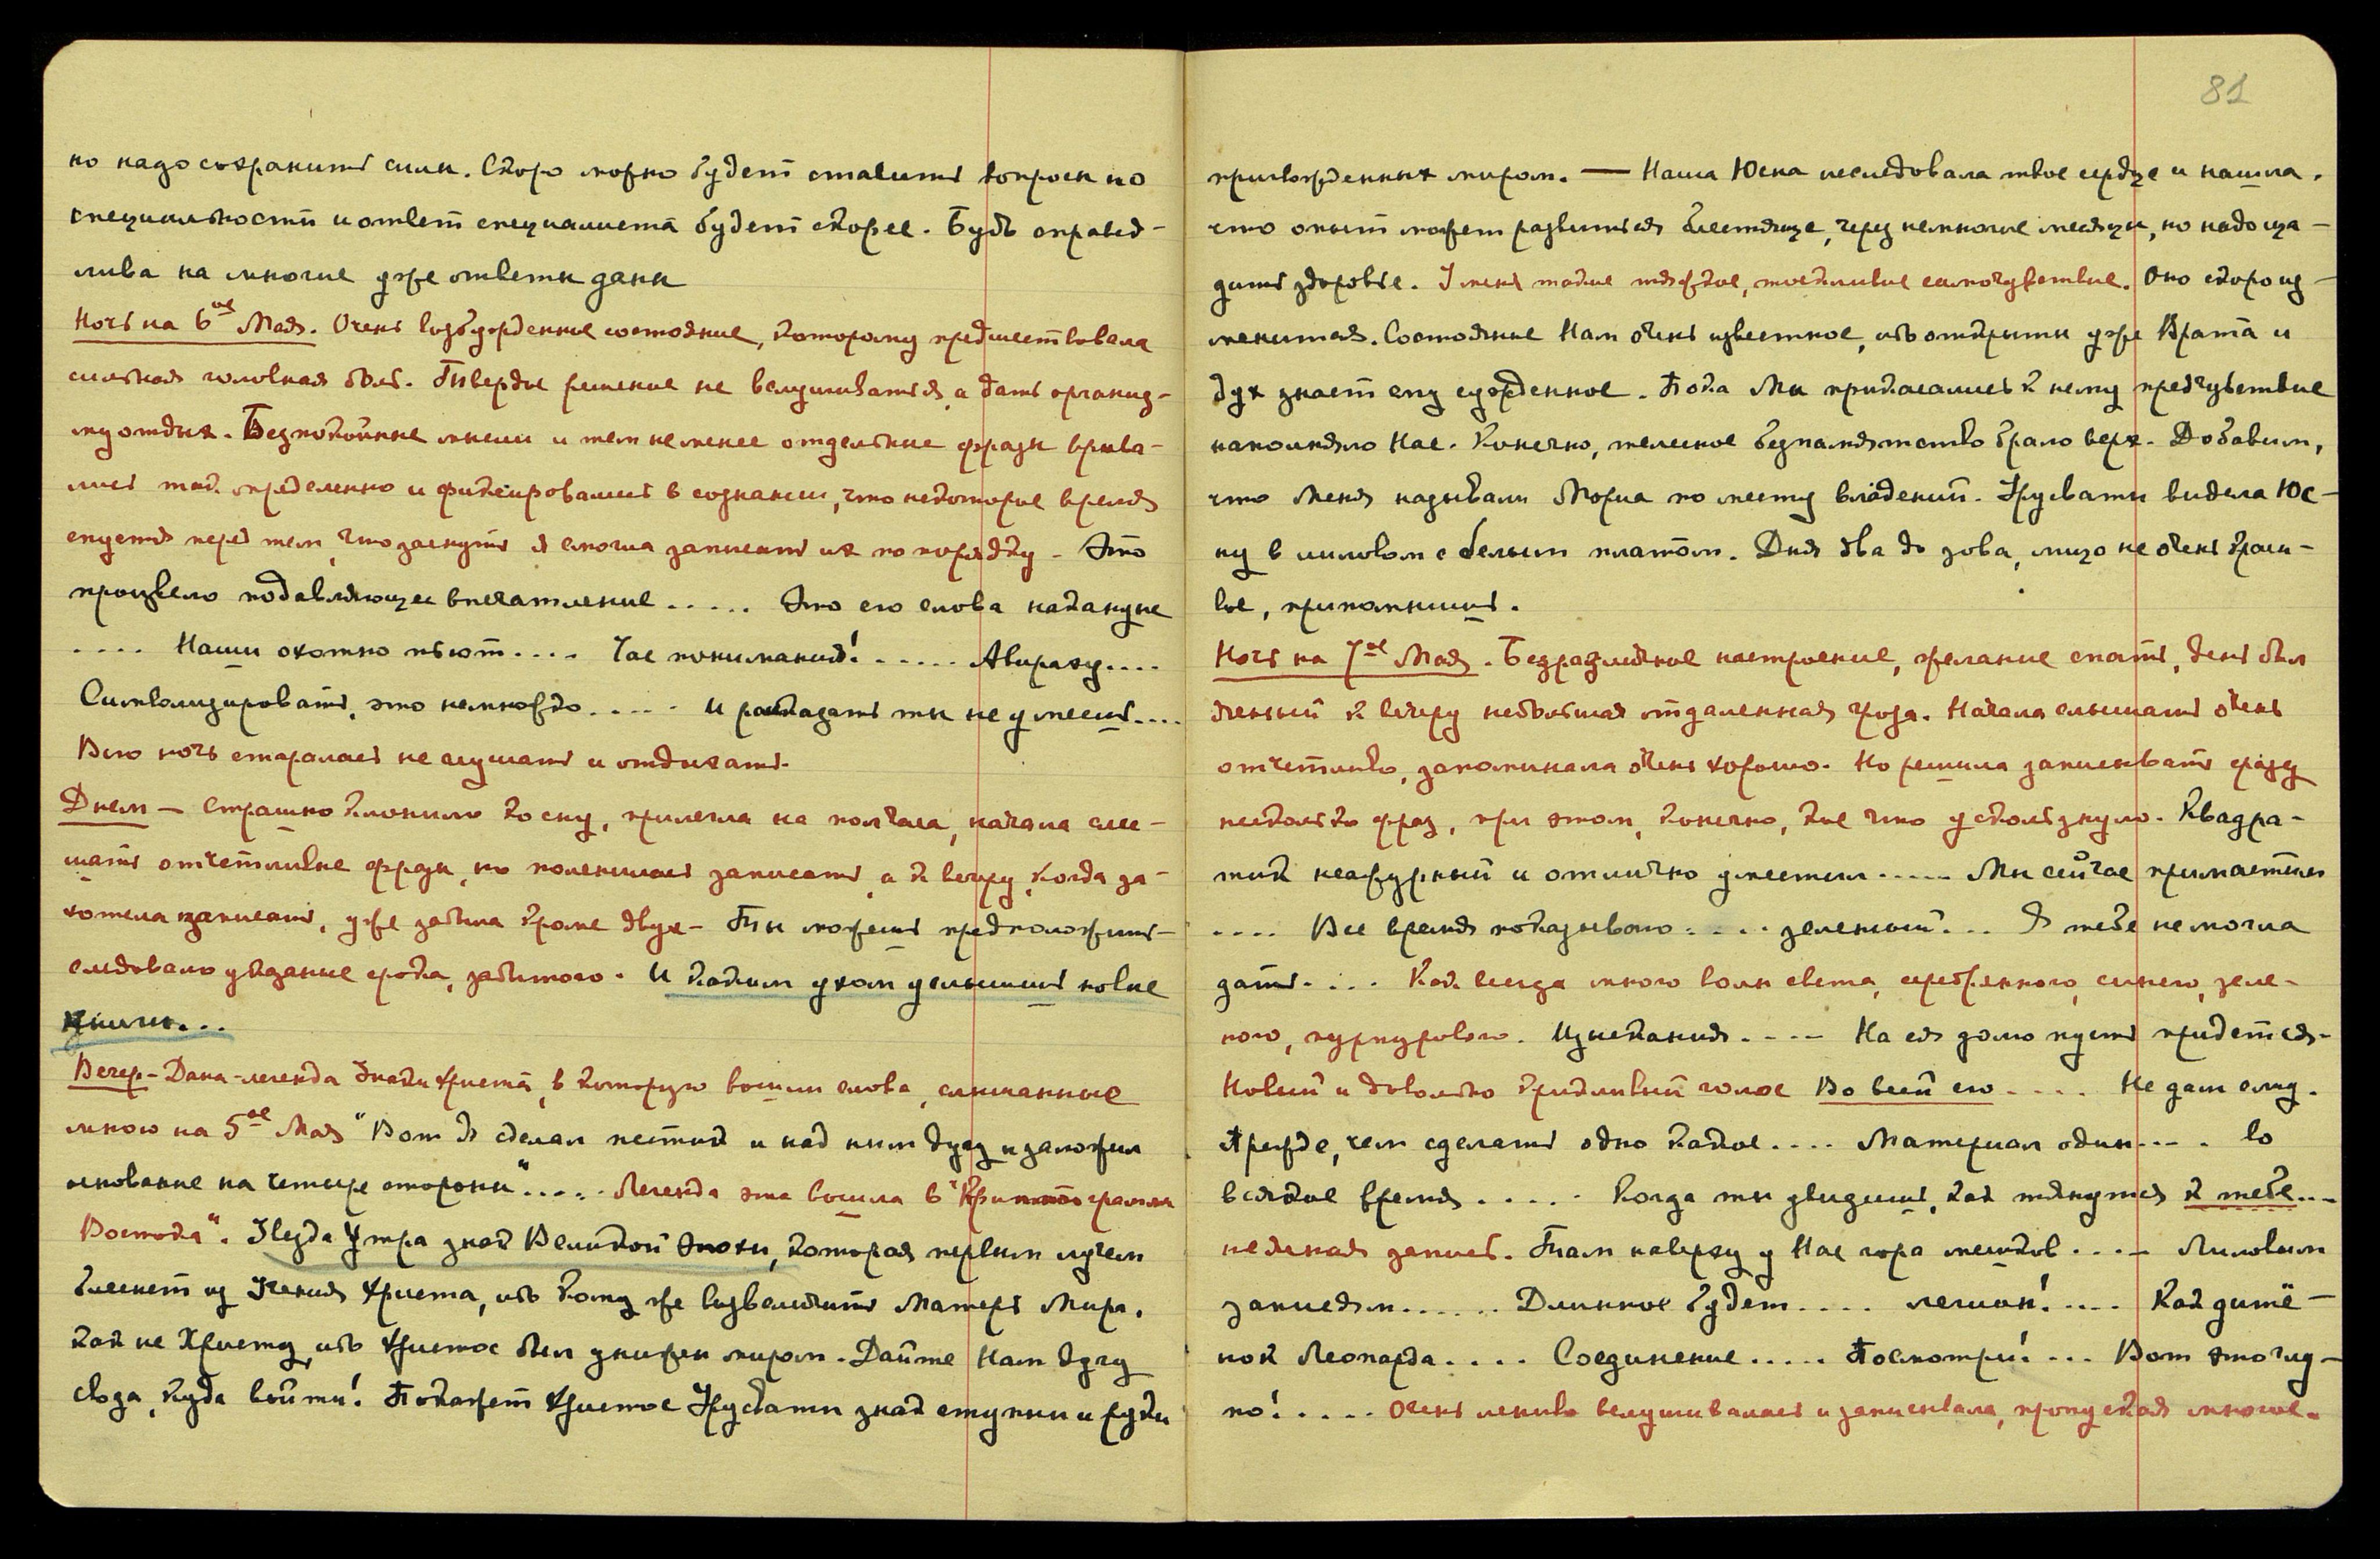 но надо сохранить силы. Скоро можно будет ставить вопросы по
специальности и ответ специалиста будет скорее. Будь справед-
лива на многие уже ответы даны
Ночь на 6ое Мая. Очень возбужденное состояние, которому предшествовала
сильная головная боль. Твердое решение не вслушиваться, а дать организ-
му отдых. Безпокойные мысли и тем не менее отдельные фразы врыва-
лись так определенно и фиксировались в сознании, что некоторое время
спустя перед тем, что заснуть я смогла записать их по порядку – Это
произвело подавляющее впечатление ..... Это его слова накануне
.... Наши охотно пьют .... Час понимания! ..... Авираху ....
Символизировать, это немножко ..... И рассказать ты не умеешь ....
Всю ночь старалась не слушать и отдыхать.
Днем – Страшно клонило ко сну, прилегла на полчаса, начала слы-
шать отчетливые фразы, но поленилась записать, а к вечеру, когда за-
хотела записать, уже забыла кроме двух – Ты можешь предположить –
следовало указание срока, забытого. И каким ухом услышишь новые
книги...
Вечер – Дана – легенда Знаки Христа, в которую вошли слова, слышанные
мною на 5ое Мая "Вот Я сделал мостик и над ним дугу и заложил
основание на четыре стороны" ..... Легенда эта вошла в "Криптограммы
Востока". Звезда Утра знак Великой Эпохи, которая первым лучем
блеснет из Учения Христа, ибо кому же возвеличить Матерь Мира,
как не Христу, ибо Христос был унижен миром. Дайте Нам дугу
свода, куда войти! Покажет Христос Урусвати знак ступни и руки
81
пригвожденных миром. — Наша Юсна исследовала твое сердце и нашла,
что опыт может развиться блестяще, через немногие месяцы, но надо ща-
дить здоровье. У меня такое тяжкое, тоскливое самочувствие. Оно скоро из-
менится. Состояние Нам очень известное, ибо открыты уже Врата и
дух знает ему сужденное. Пока Мы прикасались к нему предчувствие
наполняло Нас. Конечно, телесное безпамятство брало верх. Добавим,
что Меня называли Мориа по месту владений. Урусвати видела Юс-
ну в лиловом с белым платом. Дня два до зова, лицо не очень краси-
вое, припомнишь.
Ночь на 7ое Мая. Безразличное настроение, желание спать, день был
ясный к вечеру небольшая отдаленная гроза. Начала слышать очень
отчетливо, запоминала очень хорошо. Но решила записывать сразу
несколько фраз, при этом, конечно, кое что ускользнуло. Квадра-
тик неажурный и отлично уместим ..... Мы сейчас примастим
.... Все время показывало .... зеленый ... Я тебе не могла
дать .... Как всегда много волн света, серебрянного, синего, зеле-
ного, пурпурового. Изыскания .... На ея долю пусть придется –
Новый и довольно крикливый голос Во всей его .... Не дам ему.
Прежде, чем сделать одно какое .... Материал один .... Во
всякое время ..... Когда ты увидишь, как тянутся к тебе ...
неясная запись. Там наверху у Нас гора мешков .... Лиловым
запишем ...... Длинное будет .... легион! .... Как дитё-
нок Леопарда .... Соединение ..... Посмотри! ... Вот это чуд-
но! ..... Очень лениво вслушивалась и записывала, пропуская многое.